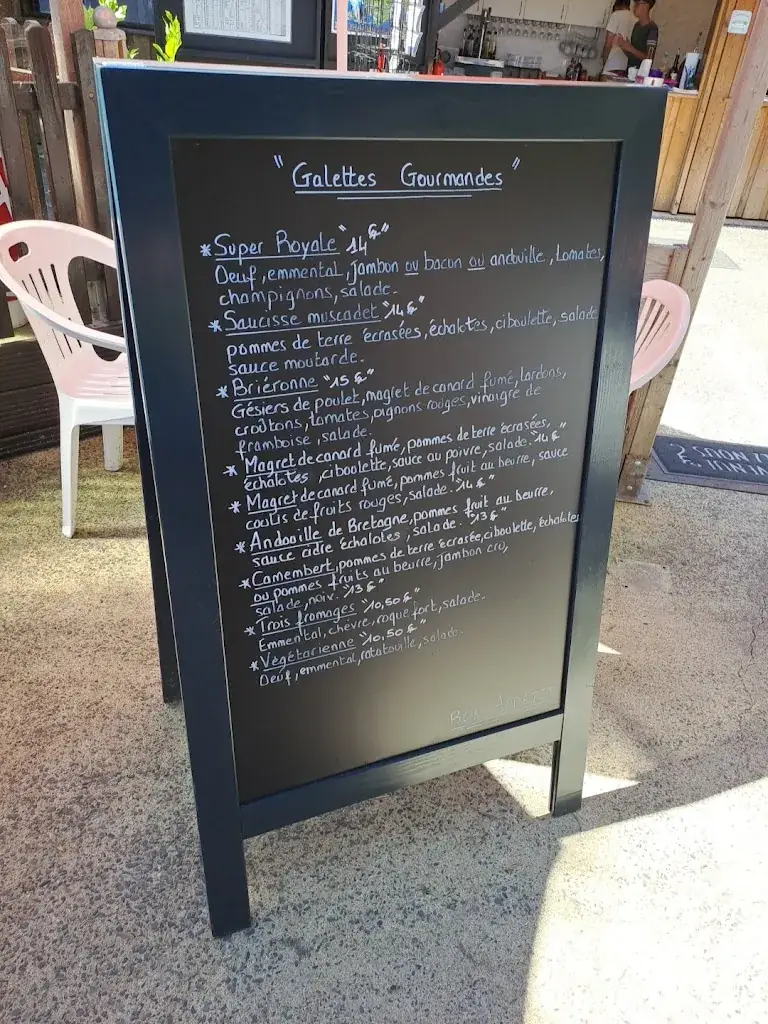 " Galettes Gourmandes "
*Super Royale "14€"
Oeuf, emmental, jambon ou bacon ou andouille, tomates,
champignons, salade.
*Saucisse muscadet "14€"
pommes de terre écrasées, échalotes, ciboulette, salade
sauce moutarde.
*Briéronne "15€"
Gésiers de poulet, magret de canard fumé, lardons,
croûtons, tomates, pignons rouges, vinaigre de
framboise, salade.
*Magret de canard fumé, pommes de terre écrasées,
échalotes, ciboulette, sauce au poivre, salade. "14€"
*Magret de canard fumé, pommes fruit au beurre, sauce
coulis de fruits rouges, salade. "14€"
*Andouille de Bretagne, pommes fruit au beurre,
sauce cidre échalotes, salade. "13€"
*Camembert, pommes de terre écrasée, ciboulette, échalotes
ou pommes fruits au beurre, jambon cru,
salade, noix. "13€"
*Trois fromages "10,50€"
Emmental, chèvre, roquefort, salade.
*Végétarienne "10,50€"
Oeuf, emmental, ratatouille, salade.
Bon Appétit